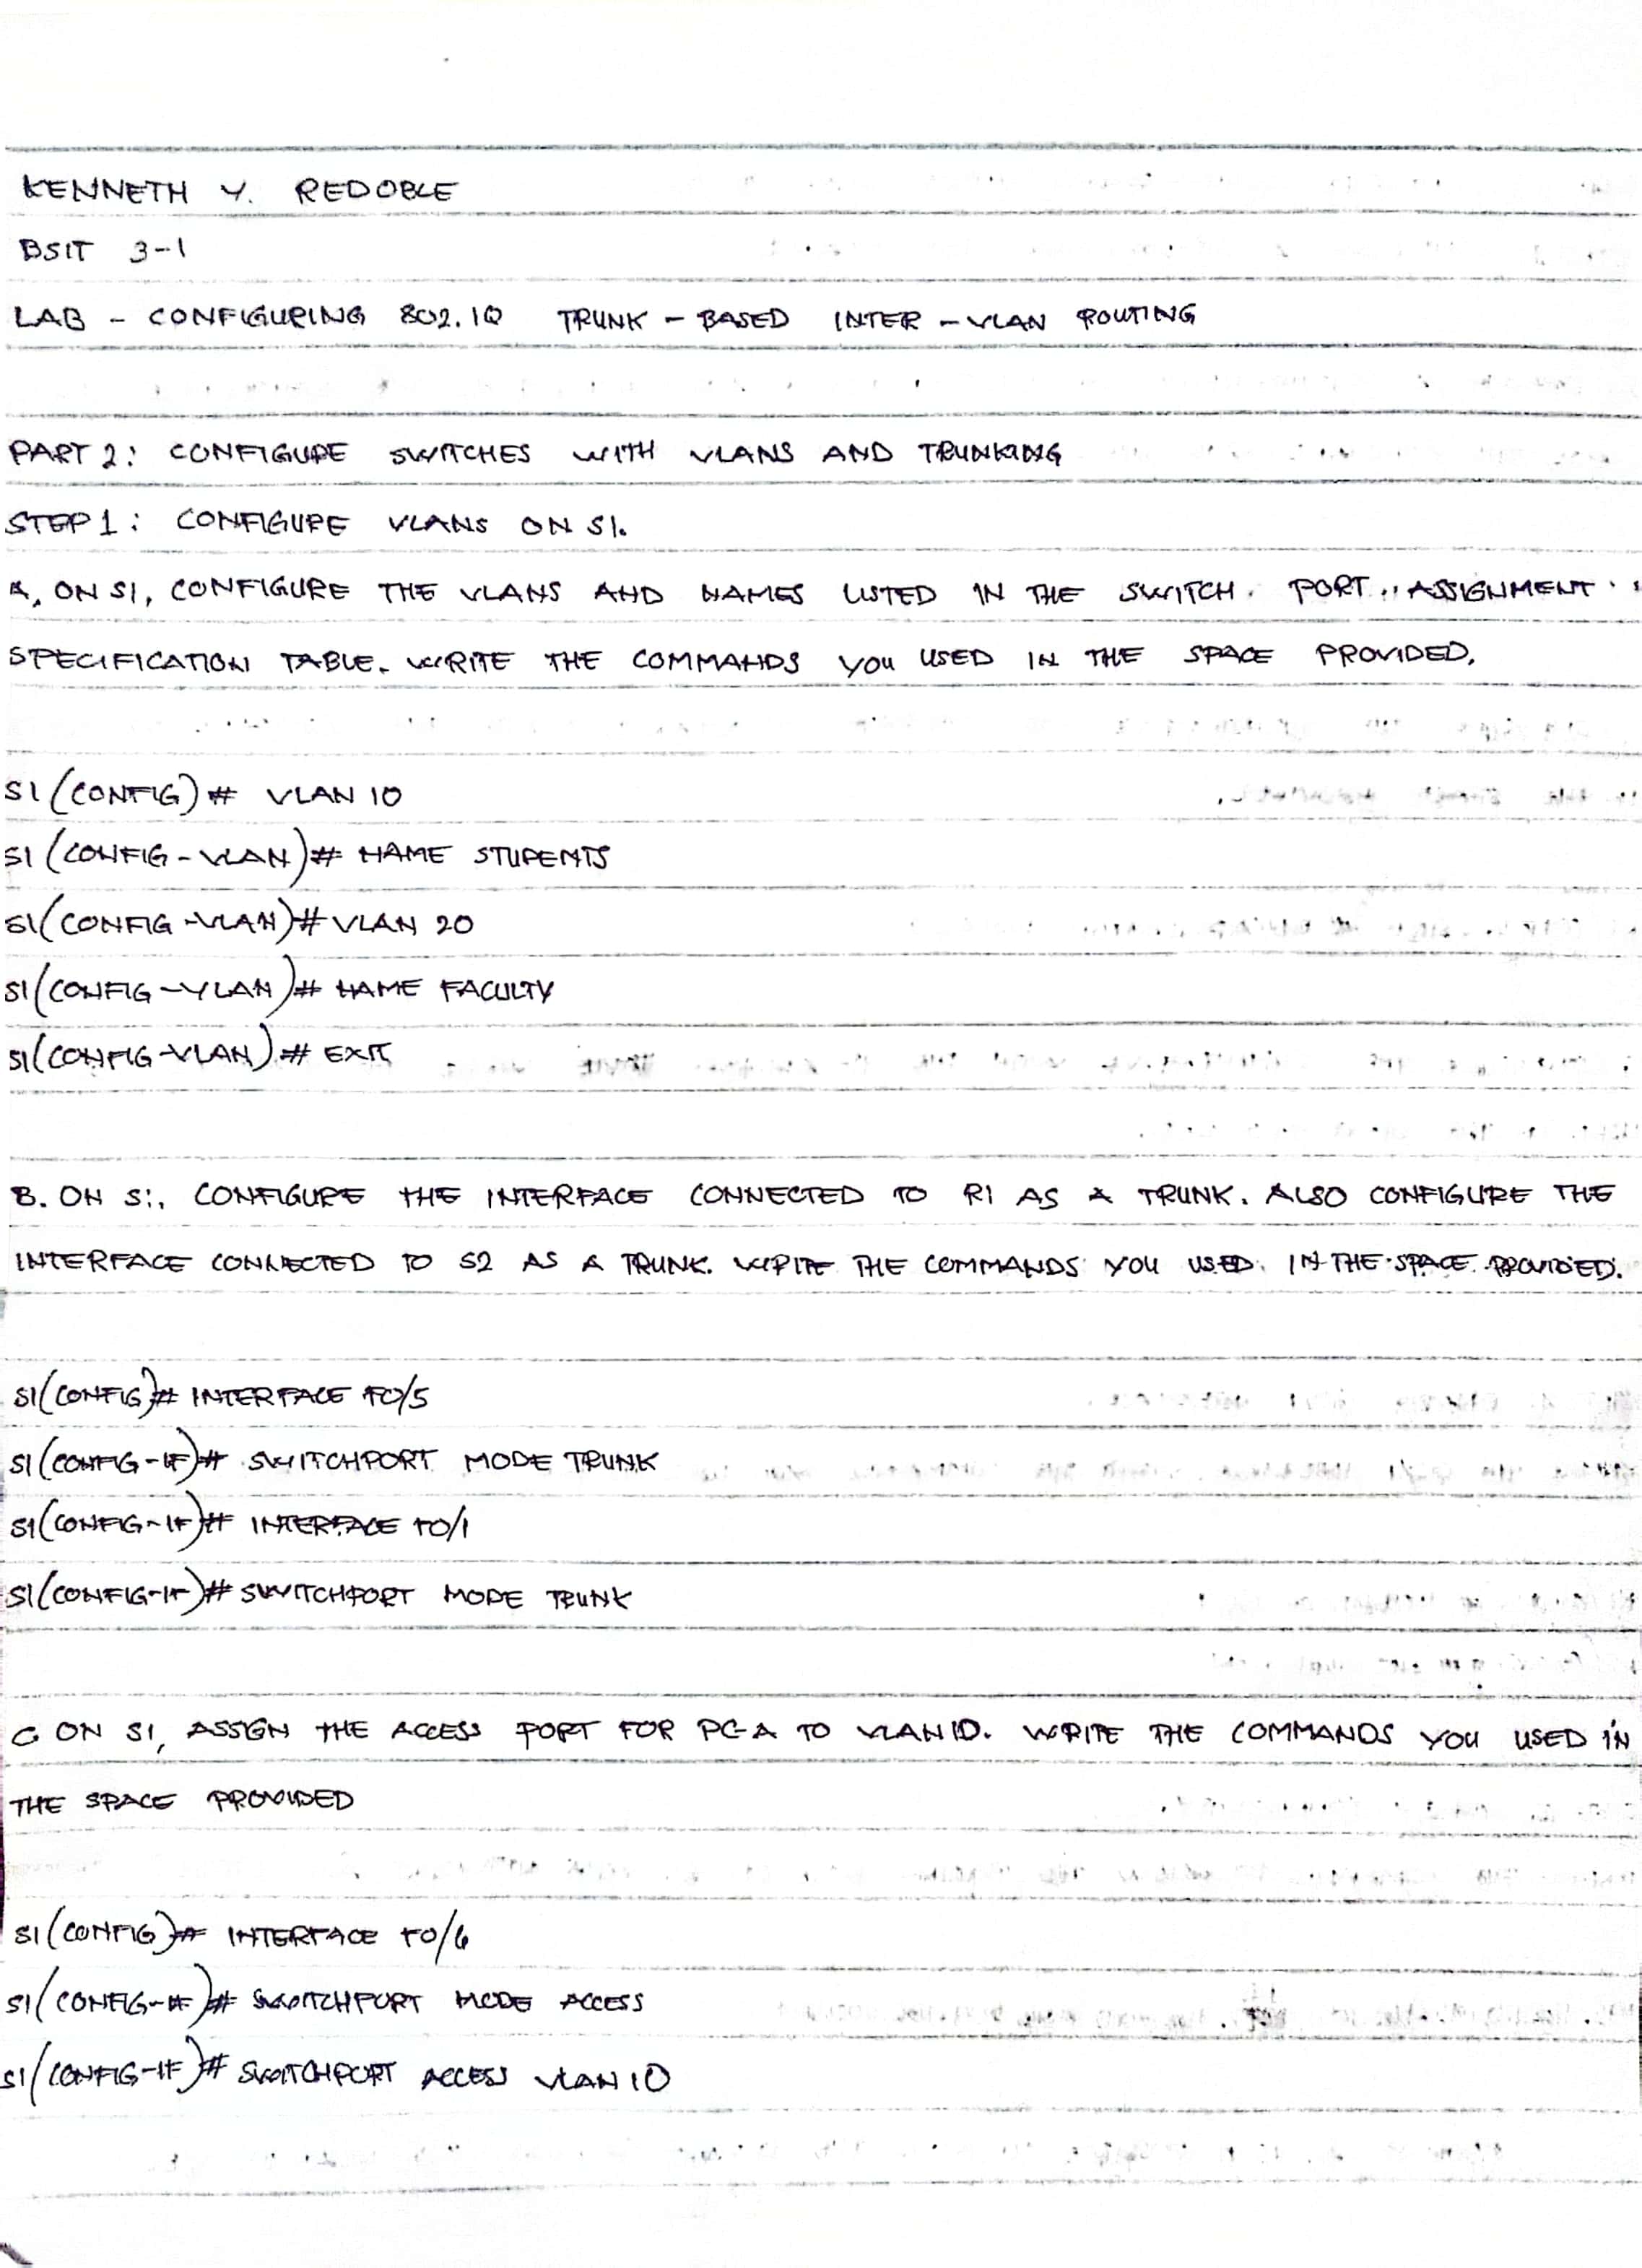 KENNETH Y. REDOBLE
BSIT 3-1
LAB - CONFIGURING 802.1Q TRUNK - BASED INTER - VLAN ROUTING
PART 2: CONFIGURE SWITCHES WITH VLANS AND TRUNKING
STEP 1: CONFIGURE VLANS ON S1.
A. ON S1, CONFIGURE THE VLANS AND NAMES LISTED IN THE SWITCH PORT ASSIGNMENT
SPECIFICATION TABLE. WRITE THE COMMANDS YOU USED IN THE SPACE PROVIDED.
S1(CONFIG)# VLAN 10
S1(CONFIG-VLAN)# NAME STUDENTS
S1(CONFIG-VLAN)# VLAN 20
S1(CONFIG-VLAN)# NAME FACULTY
S1(CONFIG-VLAN)# EXIT
B. ON S1, CONFIGURE THE INTERFACE CONNECTED TO R1 AS A TRUNK. ALSO CONFIGURE THE
INTERFACE CONNECTED TO S2 AS A TRUNK. WRITE THE COMMANDS YOU USED IN THE SPACE PROVIDED.
S1(CONFIG)# INTERFACE F0/5
S1(CONFIG-IF)# SWITCHPORT MODE TRUNK
S1(CONFIG-IF)# INTERFACE F0/1
S1(CONFIG-IF)# SWITCHPORT MODE TRUNK
C. ON S1, ASSIGN THE ACCESS PORT FOR PC-A TO VLAN 10. WRITE THE COMMANDS YOU USED IN
THE SPACE PROVIDED
S1(CONFIG)# INTERFACE F0/6
S1(CONFIG-IF)# SWITCHPORT MODE ACCESS
S1(CONFIG-IF)# SWITCHPORT ACCESS VLAN 10